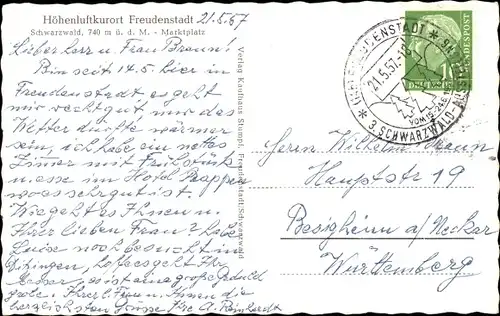 Höhenluftkurort Freudenstadt 21.5.57
Schwarzwald, 740 m ü. d. M. - Marktplatz
Lieber Herr u. Frau Braun!
Bin seit 14.5. hier in
Freudenstadt es geht
mir recht gut, nur das
Wetter dürfte wärmer
sein, ich habe ein nettes
Zimmer mit Frühstück
essen im Hotel Rappen
wo es sehr gut ist.
Wie geht es Ihnen u.
Ihrer lieben Frau? habe
Luise noch besucht in
hoffe es geht Ihr
besser, es ist eine große Geduld
Ihrer l. Frau u. Ihnen die
herzlichsten Grüsse Ihre A. Reinhardt
Verlag Kaufhaus Stumpf, Freudenstadt/Schwarzwald
FREUDENSTADT
21.5.57
3. SCHWARZWALD-
DEUTSCHE BUNDESPOST
10
Herrn Wilhelm Braun
Hauptstr 19
Besigheim a/Neckar
Württemberg